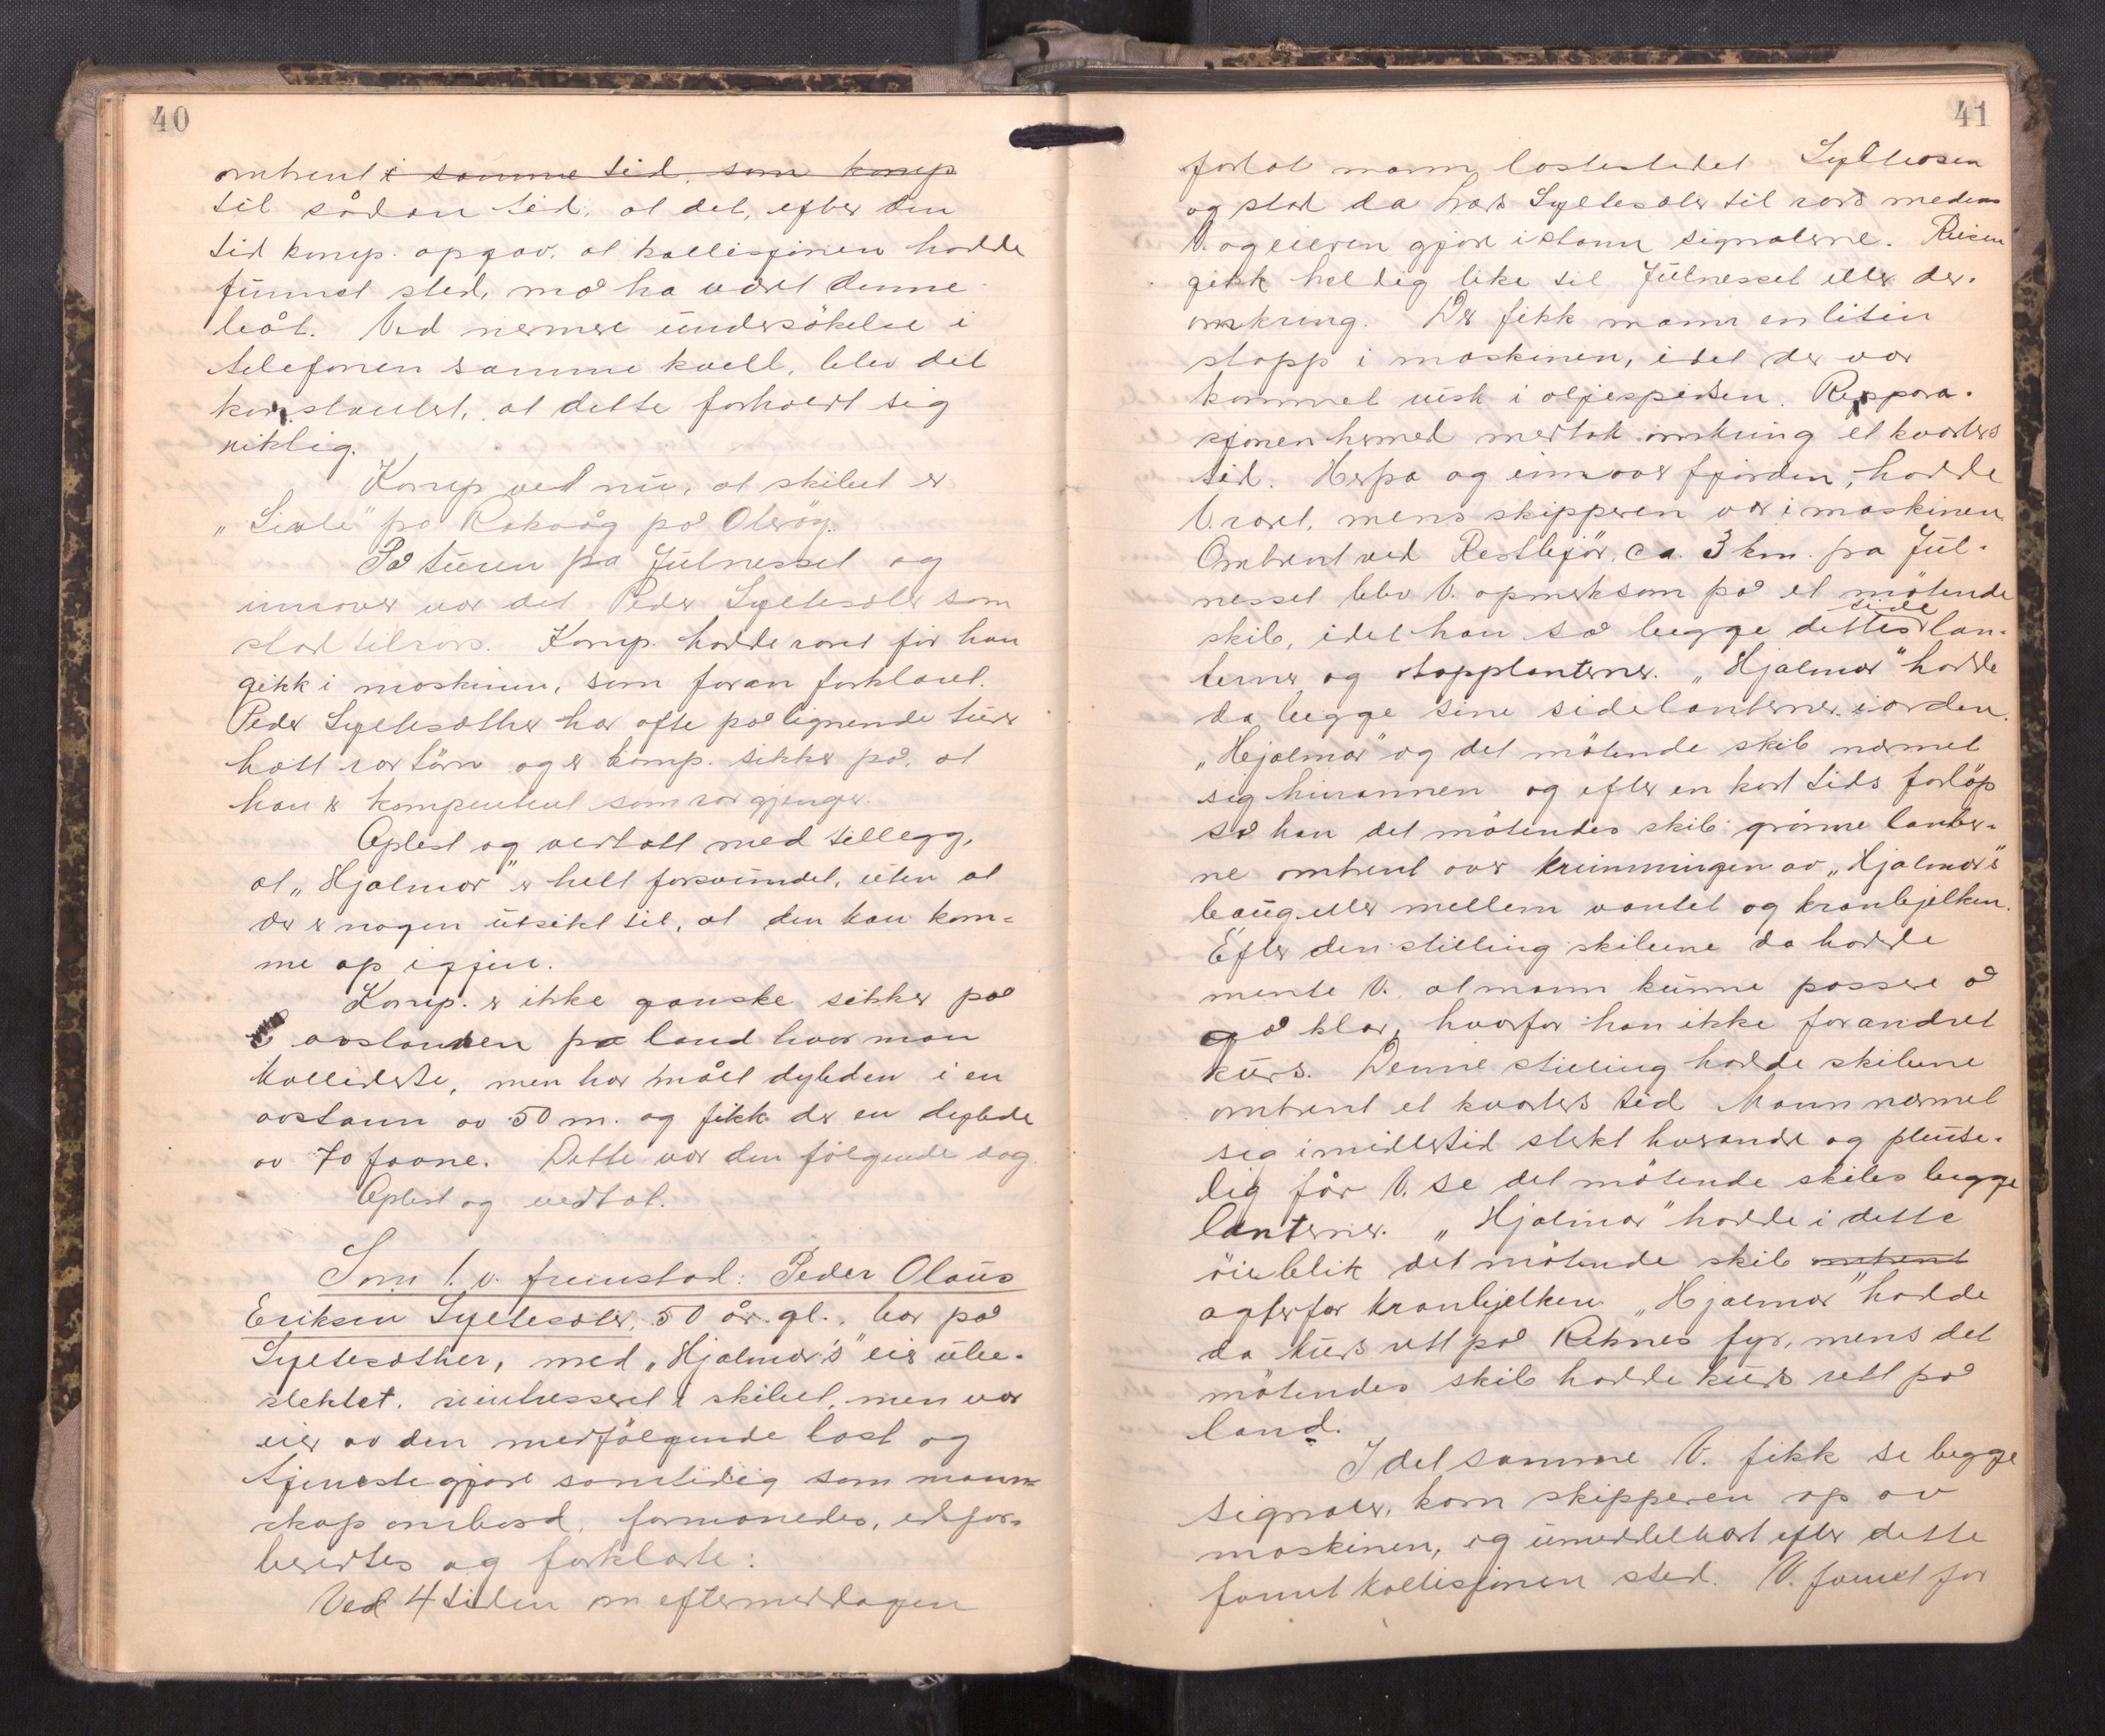 40
omtrent i samme tid, som komp
til sådan tid, at det, efter den
tid komp. opgav, at kollisjonen hadde
funnet sted, må ha været denne
båt. Ved nermere undersökelse i
telefonen samme kvell, blev det
konstantert, at dette forholdt sig
riktig.
Komp vet nu, at skibet er
"Sivle" fra Rakvåg på Oterøy.
På turen fra Julnesset og
innover var det Peder Syltesæter som
stod tilrors. Komp. hadde roret för han
gikk i maskinen, som foran forklaret.
Peder Syltesæther har ofte på lignende turer
hatt rortörn og er komp. sikker på, at
han er kompentent som rorgjenger.
Oplest og vedtatt med tillegg,
at "Hjalmar" er helt forsvundet, uten at
der er nogen utsikt til, at den kan kom=
me op igjen.
Komp. er ikke ganske sikker på
avstanden fra land hvor man
kolliderte, men har målt dybden i en
avstann av 50 m. og fikk der en dybde
av 70 favne. Dette var den fölgende dag.
Oplest og vedtat.
Som 1. v. fremstod: Peder Olaus
Eriksen Syltesæter, 50 år. gl., bor på
Syltesæther, med "Hjalmar's" eier ube-
slektet. uintresseret i skibet, men var
eier av den medfölgende last og
tjenestegjore samtidig som mann-
skap ombord, formanedes, edfor-
beredtes og forklarte:
Ved 4 tiden om eftermeddagen
41
forlot mann lastestedet Sylteosen
og stod da Lars Syltesæter til rors medens
V. og eieren gjore istann signalerne. Reisen
gikk heldig like til Julnesset eller der-
omkring. Der fikk mann en liten
stopp i maskinen, idet der var
kommet rusk i oljespissen. Reppara-
sjonen hermed medtok omkring et kvarters
tid. Herfra og innover fjorden, hadde
V. roret, mens skipperen var i maskinen
Omtrent ved Restbjör, ca. 3 km. fra Jul-
nesset blev V. opmerksom på et mötende
skib, idet han så begge dettes side lan-
terner og topplanterner. "Hjalmar" hadde
da begge sine sidelanterner i orden.
"Hjalmar" og det mötende skib nærmet
sig hinannen og efter en kort tids forlöp
så han det mötendes skib grönne lanter-
ne omtrent over krumningen av "Hjalmar's"
baug eller mellem vantet og kranbjelken.
Efter den stilling skibene da hadde
mente V. at mann kunne passere å
gå klar, hvorfor han ikke forandret
kurs. Denne stilling hadde skibene
omtrent et kvarters tid. Mann nærmet
sig imidlertid sterkt hverandre og plutse-
lig får V. se det mötende skibs begge
lanterner. "Hjalmar" hadde i dette
öieblik det mötende skib omtrent
agterfor kranbjelken "Hjalmar" hadde
da kurs rett på Reknes fyr, mens det
mötendes skib hadde kurs rett på
land.
I det samme V. fikk se begge
signaler, kom skipperen op av
maskinen, og umiddelbart efter dette
fannt kollisjonen sted. V. for